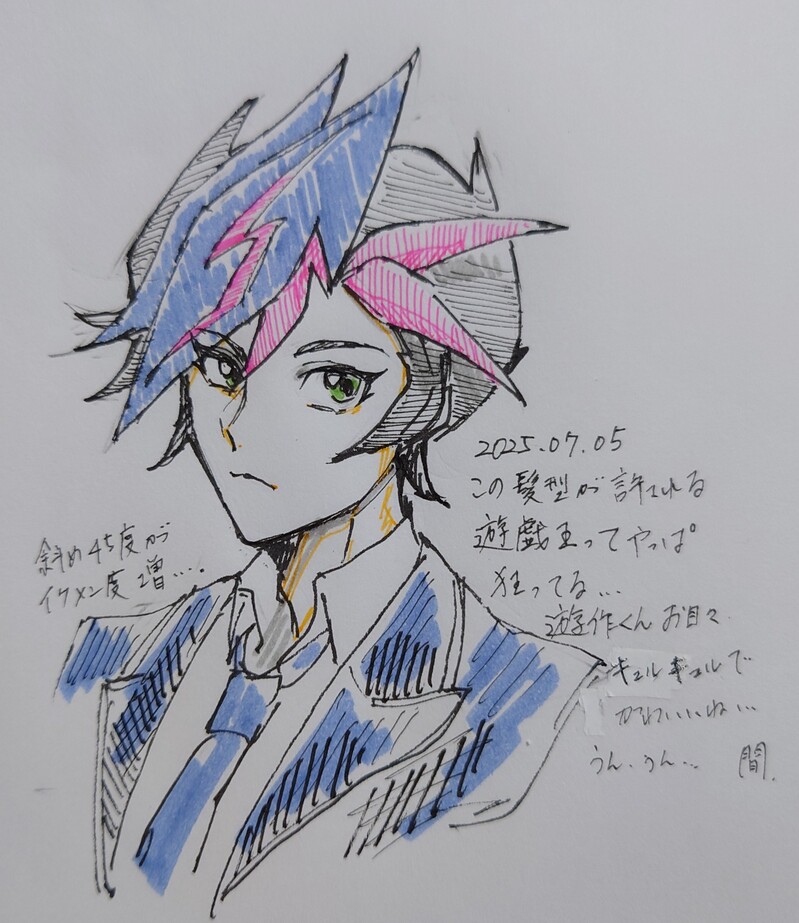 2025.07.05
この髪型が許される
遊戯王ってやっぱ
狂ってる...
遊作くんお目々
キュルキュルで
かわいいね...
うん、うん...
闇.
斜め45度が
イケメン度増....